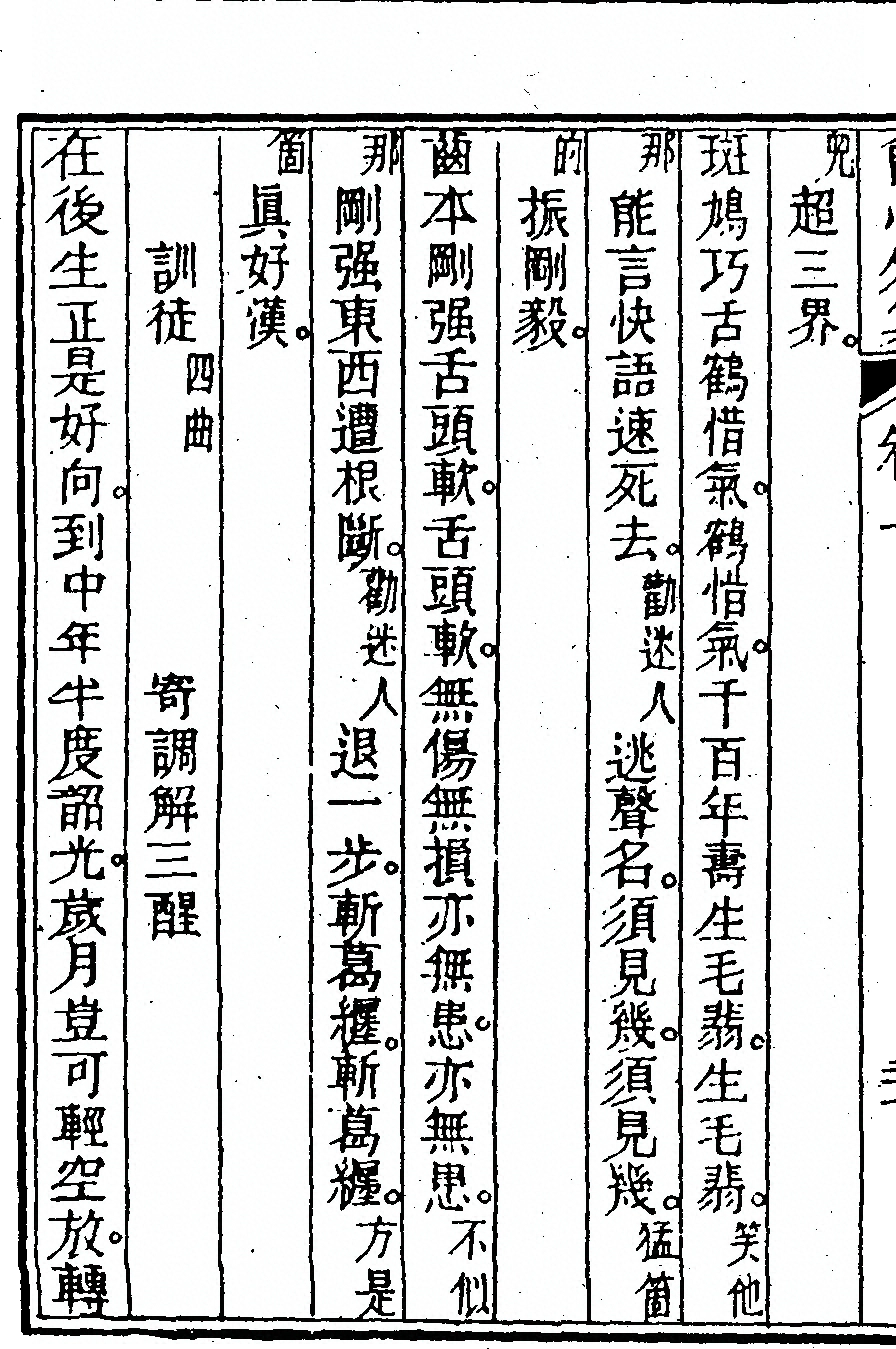 兜超三界。
斑鳩巧舌鶴惜氣。鶴惜氣。千百年壽生毛翡。生毛翡。笑他
那能言快語速死去。勸迷人逃聲名。須見幾。須見幾。猛箇
的振剛毅。
齒本剛强舌頭軟。舌頭軟。無傷無損亦無患。亦無患。不似
那剛强東西遭根斷。勸迷人退一步。斬葛纏。斬葛纏。方是
箇眞好漢。
訓徒四曲 寄調解三酲
在後生正是好向。到中年半度韶光。歲月豈可輕空放。轉